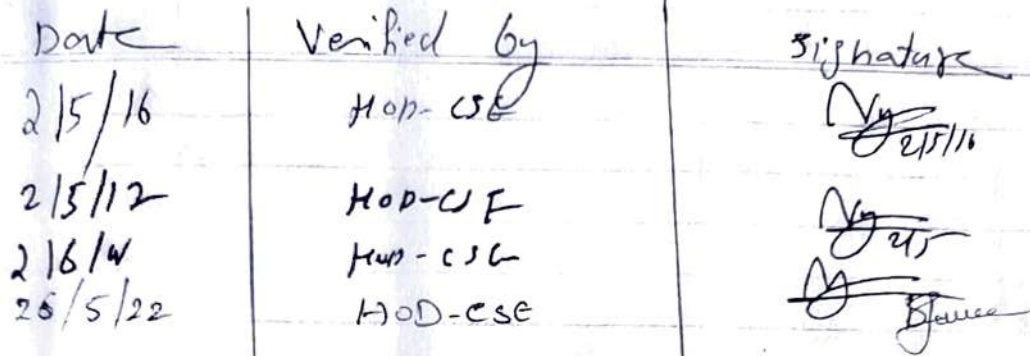 Date Verified by Signature
2/5/16 HOD-CSE
2/5/16
2/5/12 HOD-CSE
2/5
2/6/ HOD-CSE
25/5/22 HOD-CSE